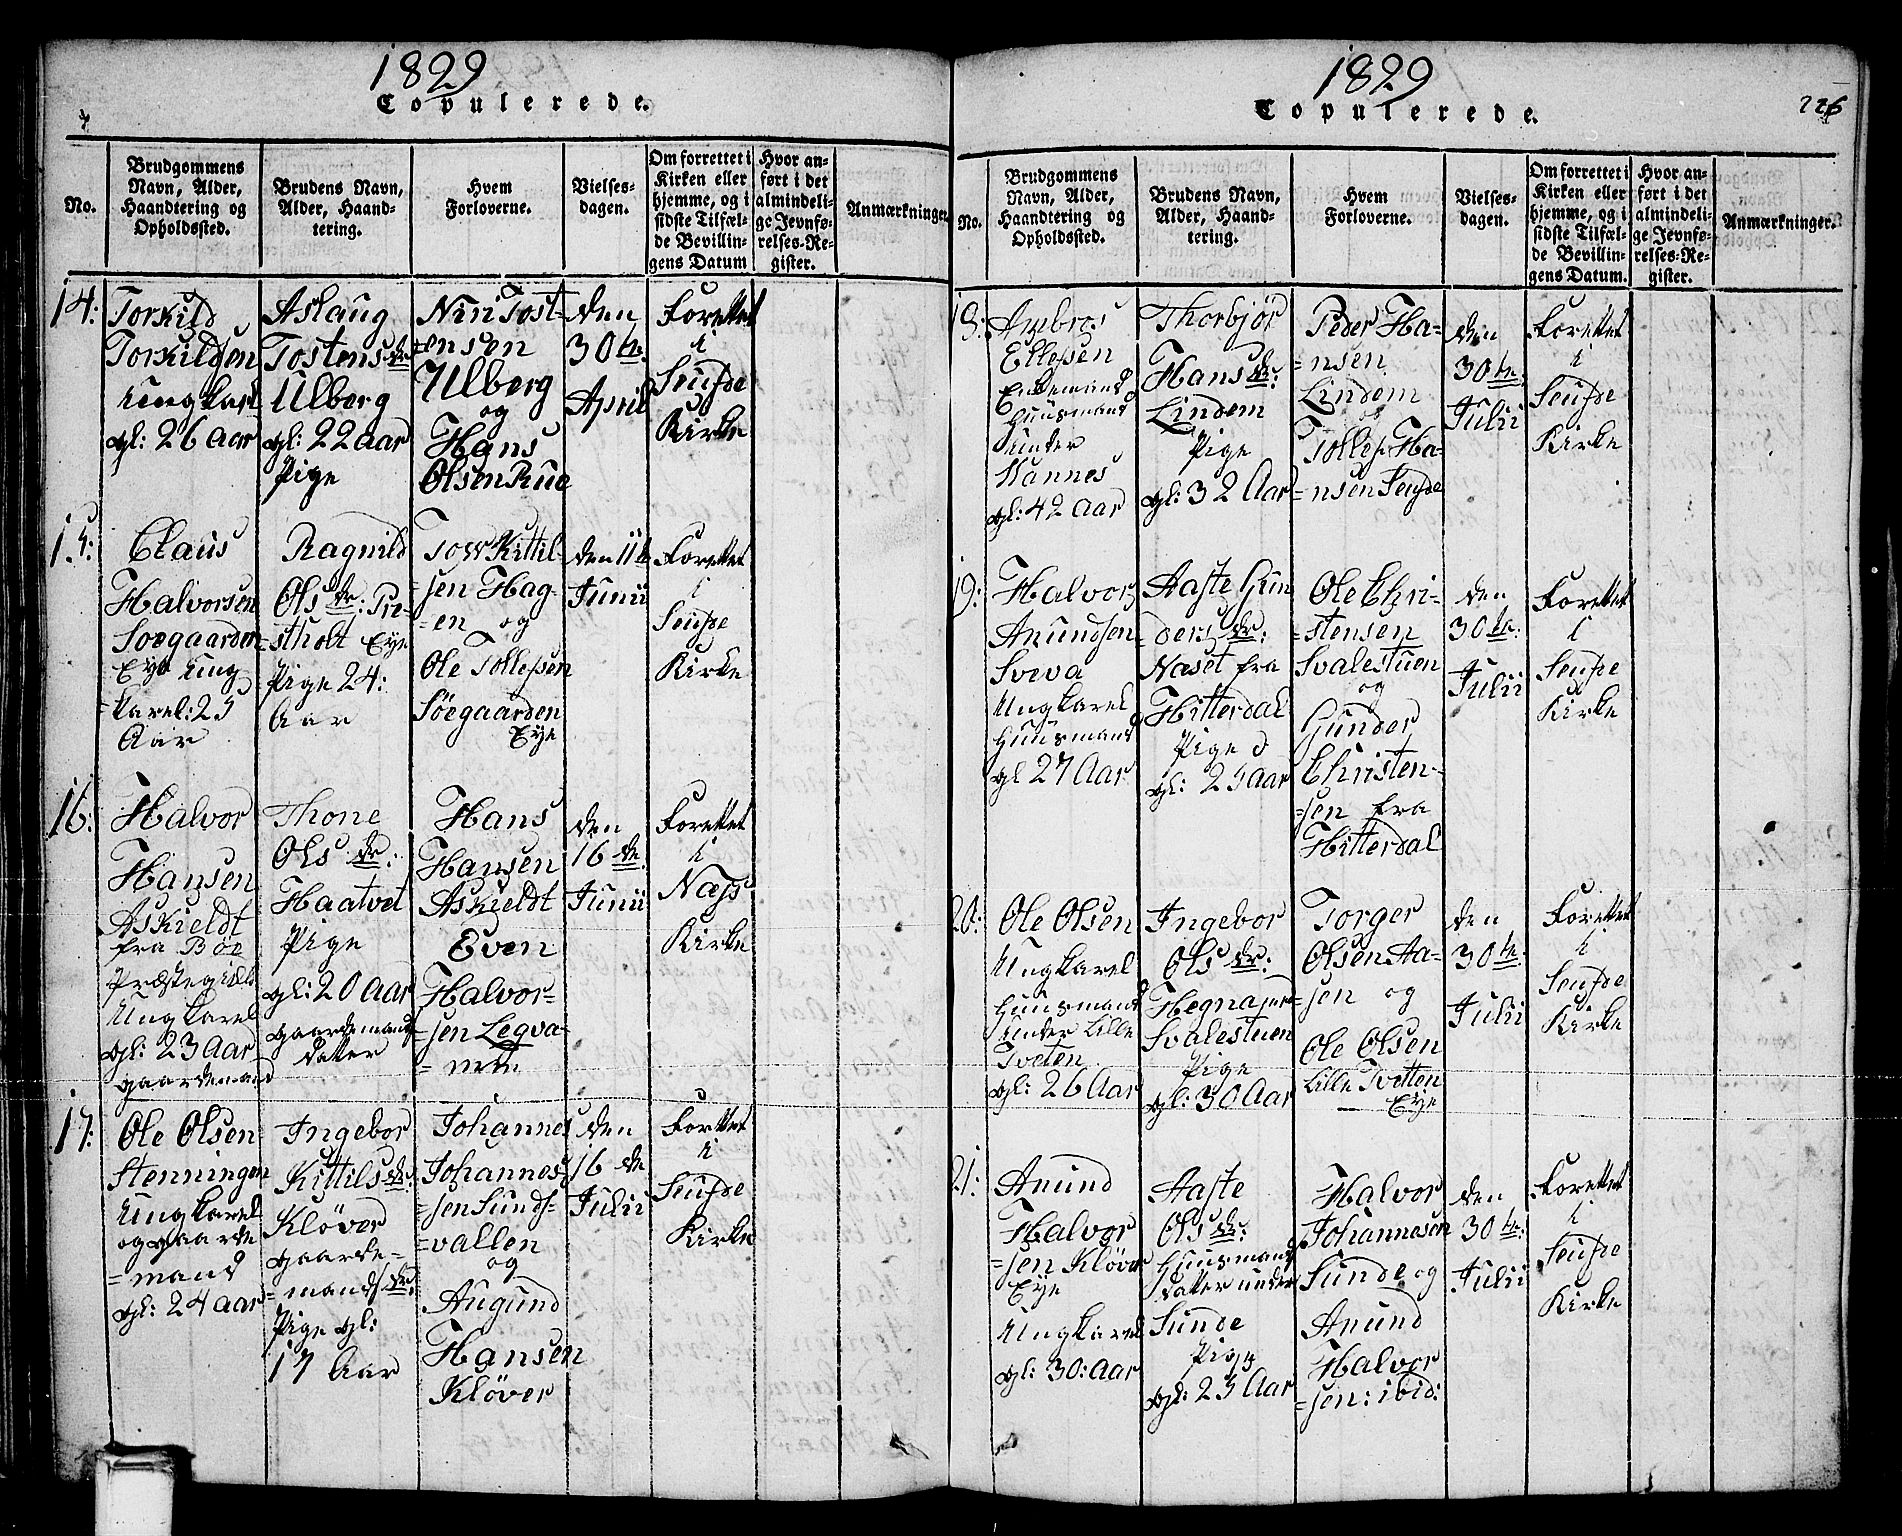 1829
Copulerede.
No.
Brudgommens
Navn, Alder,
Haandtering og
Opholdssted.
Brudens Navn,
Alder, Haand-
tering.
Hvem
Forloverne.
Vielses-
dagen.
Om forrettet i
Kirken eller
hjemme, og i
sidste Tilfæl-
de Bevillin-
gens Datum
Hvor an-
ført i det
almindeli-
ge Jevnfø-
relses-Re-
gister.
Anmærkninger.
14:
Torkild
Torkildsen
Ungkarl
gl: 26 Aar
Aslaug
Tostensdr
Ulberg
gl: 22 aar
Pige
Niri Tost-
ensen
Ulberg
og
Hans
Olsen Rue
den
30te
April
Forettet
i
Seufde
Kirke
15:
Claus
Halvorsen
Soegaarden
Eye Ung
=karel: 25
Aar
Ragnild
Ols dr: Pre-
=stholt Eye
Pige 24:
Aar
Tov Kittil-
sen Hag-
=en og
Ole Tollefsen
Söegaarden
Eye
den 11te
Junii
Forettet
i
Seufde
Kirke
16:
Halvor
Hansen
Askieldt
fra Böe
Præstegield
Ungkarel
gl: 23 Aar
gaardemand
Thone
Ols dr:
Haatvet
Pige
gl: 20 Aar
gaardemands
datter
Hans
Hansen
Askieldt
Even
Halvor-
=sen Legva-
den
16 de:
Junii
Forettet
i
Næss
Kirke
17:
Ole Olsen
Stenningen
Ungkarel
og gaarde
=mand
gl: 24 aar
Ingebor
Kittilsdr:
Klöver
gaarde-
=mands dr:
Pige gl:
17 Aar
Johannes
Johannes
=sen Sunds-
=vallen
og
Augund
Hansen
Klöver
den
16 de
Julii
Forttet
i
Seufde
Kirke
1829
Copulerede.
226
No.
Brudgommens
Navn, Alder,
Haandtering og
Opholdssted.
Brudens Navn,
Alder, Haand-
tering.
Hvem
Forloverne.
Vielses-
dagen.
Om forrettet i
Kirken eller
hjemme, og i
sidste Tilfæl-
de Bevillin-
gens Datum.
Hvor an-
ført i det
almindeli-
ge Jevnfø-
relses-Re-
gister.
Anmærkninger.
18:
Ambros
Ellefsen
Enkemand
Huusmand
Under
Nannes
gl: 42 aar
Thorbjör
Hans dr:
Lindem
Pige
gl: 32 Aar
Peder Ha-
=nsen
Lindem
og
Tollef Ha-
=nsen Seufde
den
30te
Julii
Forettet
i
Seufde
Kirke
19:
Halvor
Anundsen
Sveva
Ungkarel
Huusmand
gl 27 Aar
Aaste Gun
=ders dr:
Naset fra
Hitterdal
Pige
gl: 25 aar
Ole Chri-
=stensen
Svalestuen
og
Gunder
Christen-
=sen fra
Hitterdal
den
30te:
Julii
Forettet
i
Seufde
Kirke
20:
Ole Olsen
Ungkarel
Huusmand
under Lille
Tveten
gl: 26 Aar
Ingebor
Ols dr:
Svalestuen
Pige
gl: 30 Aar
Torger
Olsen Aa-
=sen og
Ole Olsen
Lille Tvetten
Eye
den
30te:
Julii
Forettet
i
Seufde
Kirke
21:
Anund
Halvor
=sen Klöver
Eye
Ungkarel
gl: 30: Aar
Aaste
Ols dr:
Huusmands
datter under
Sunde
Pige
gl: 25 Aar
Halvor
Johannesen
Sunde og
Anund
Halvor
=sen: ibid:
den
30te:
Julii
Forettet
i
Seufde
Kirke